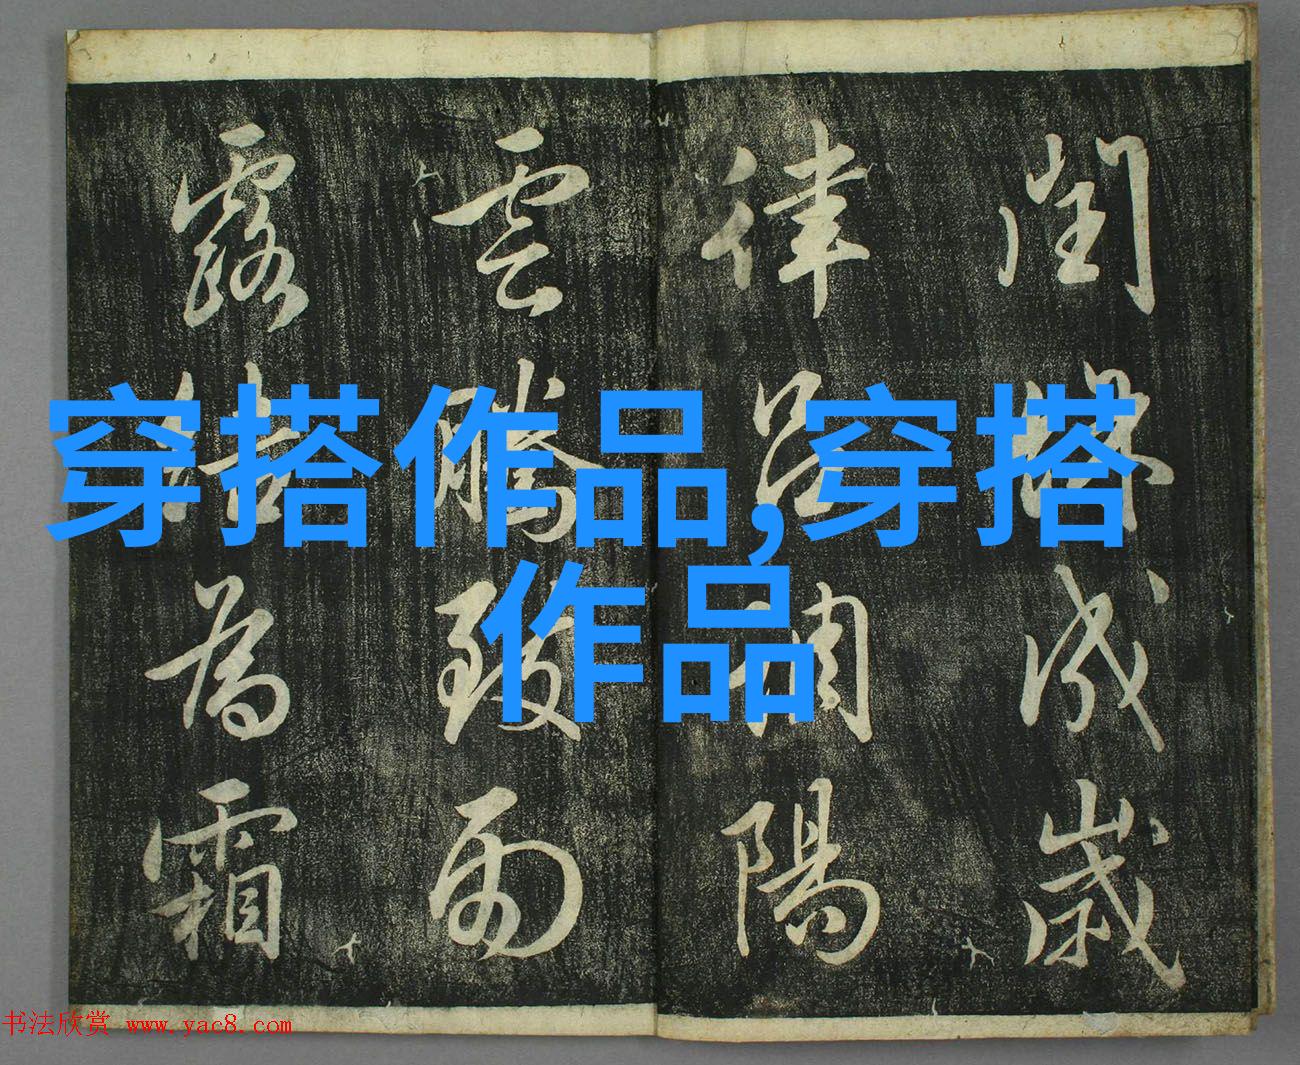 閏餘成歲
律呂調陽
雲騰致雨
露結為霜
穿搭作品,穿搭
作品
书法欣赏 www.yac8.com